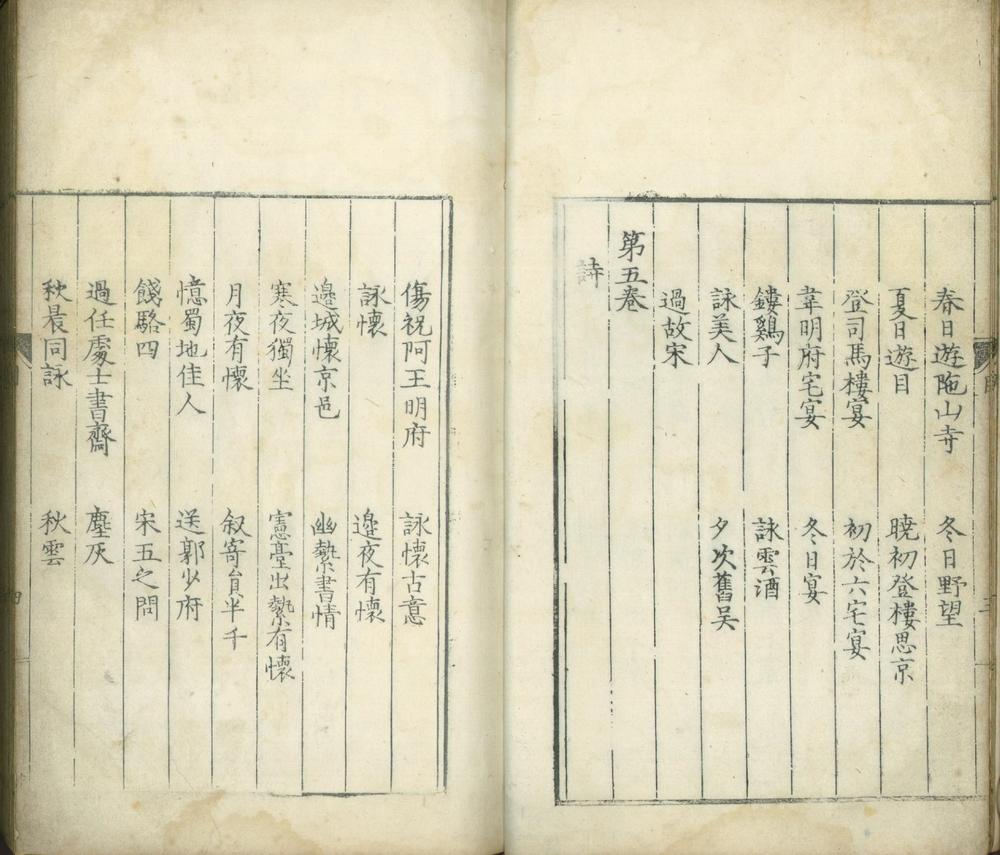 春日遊陁山寺　冬日野望
夏日遊目　曉初登樓思京
登司馬樓宴　初於六宅宴
韋明府宅宴　冬日宴
鏤鷄子　詠雲酒
詠美人　夕次舊吴
過故宋
第五卷
詩
傷祝阿王明府　詠懷古意
詠懷　邉夜有懷
邉城懷京邑　幽縶書情
寒夜獨坐　憲臺出縶有懷
月夜有懷　叙寄貟半千
憶蜀地佳人　送郭少府
餞駱四　宋五之問
過任處士書齋　塵灰
秋晨同詠　秋雲